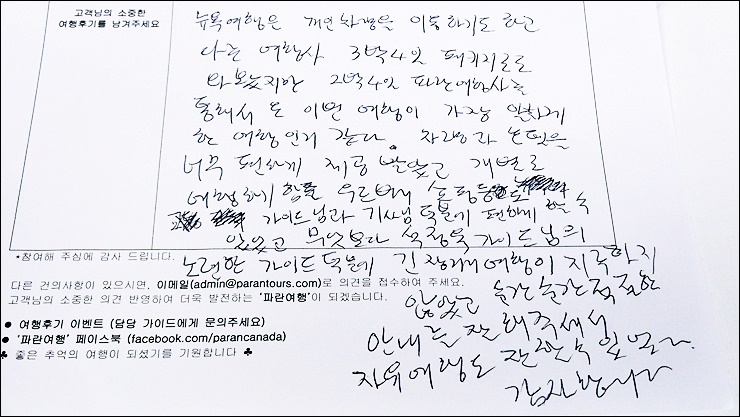 고객님의 소중한
여행후기를 남겨주세요
뉴욕여행은 개인차량을 이동하기도 하고
나른 여행사 3박4일 패키지로
와봤지만 2박4일 파란여행사를
통해서 온 이번 여행이 가장 알차게
한 여행인거 같다. 차량과 호텔을
너무 편하게 제공 받았고 개별로
여행하기 힘든 우드버리 쇼핑등도
가이드님과 기사님덕분에 편하게 할 수
있었고 무엇보다 가이드님의
노련한 가이드 덕분에 긴 여행이 지루하지
않았고 순간순간 적절한
안내를 잘 해주셔서
자유여행도 잘한 수 있었다.
감사합니다
*참여해 주심에 감사 드립니다.
다른 건의사항이 있으시면, 이메일(admin@parantours.com)로 의견을 접수하여 주세요.
고객님의 소중한 의견 반영하여 더욱 발전하는 '파란여행'이 되겠습니다.
● 여행후기 이벤트 (담당 가이드에게 문의주세요)
● '파란여행' 페이스북 (facebook.com/parancanada)
♣ 좋은 추억의 여행이 되셨기를 기원합니다 ♣